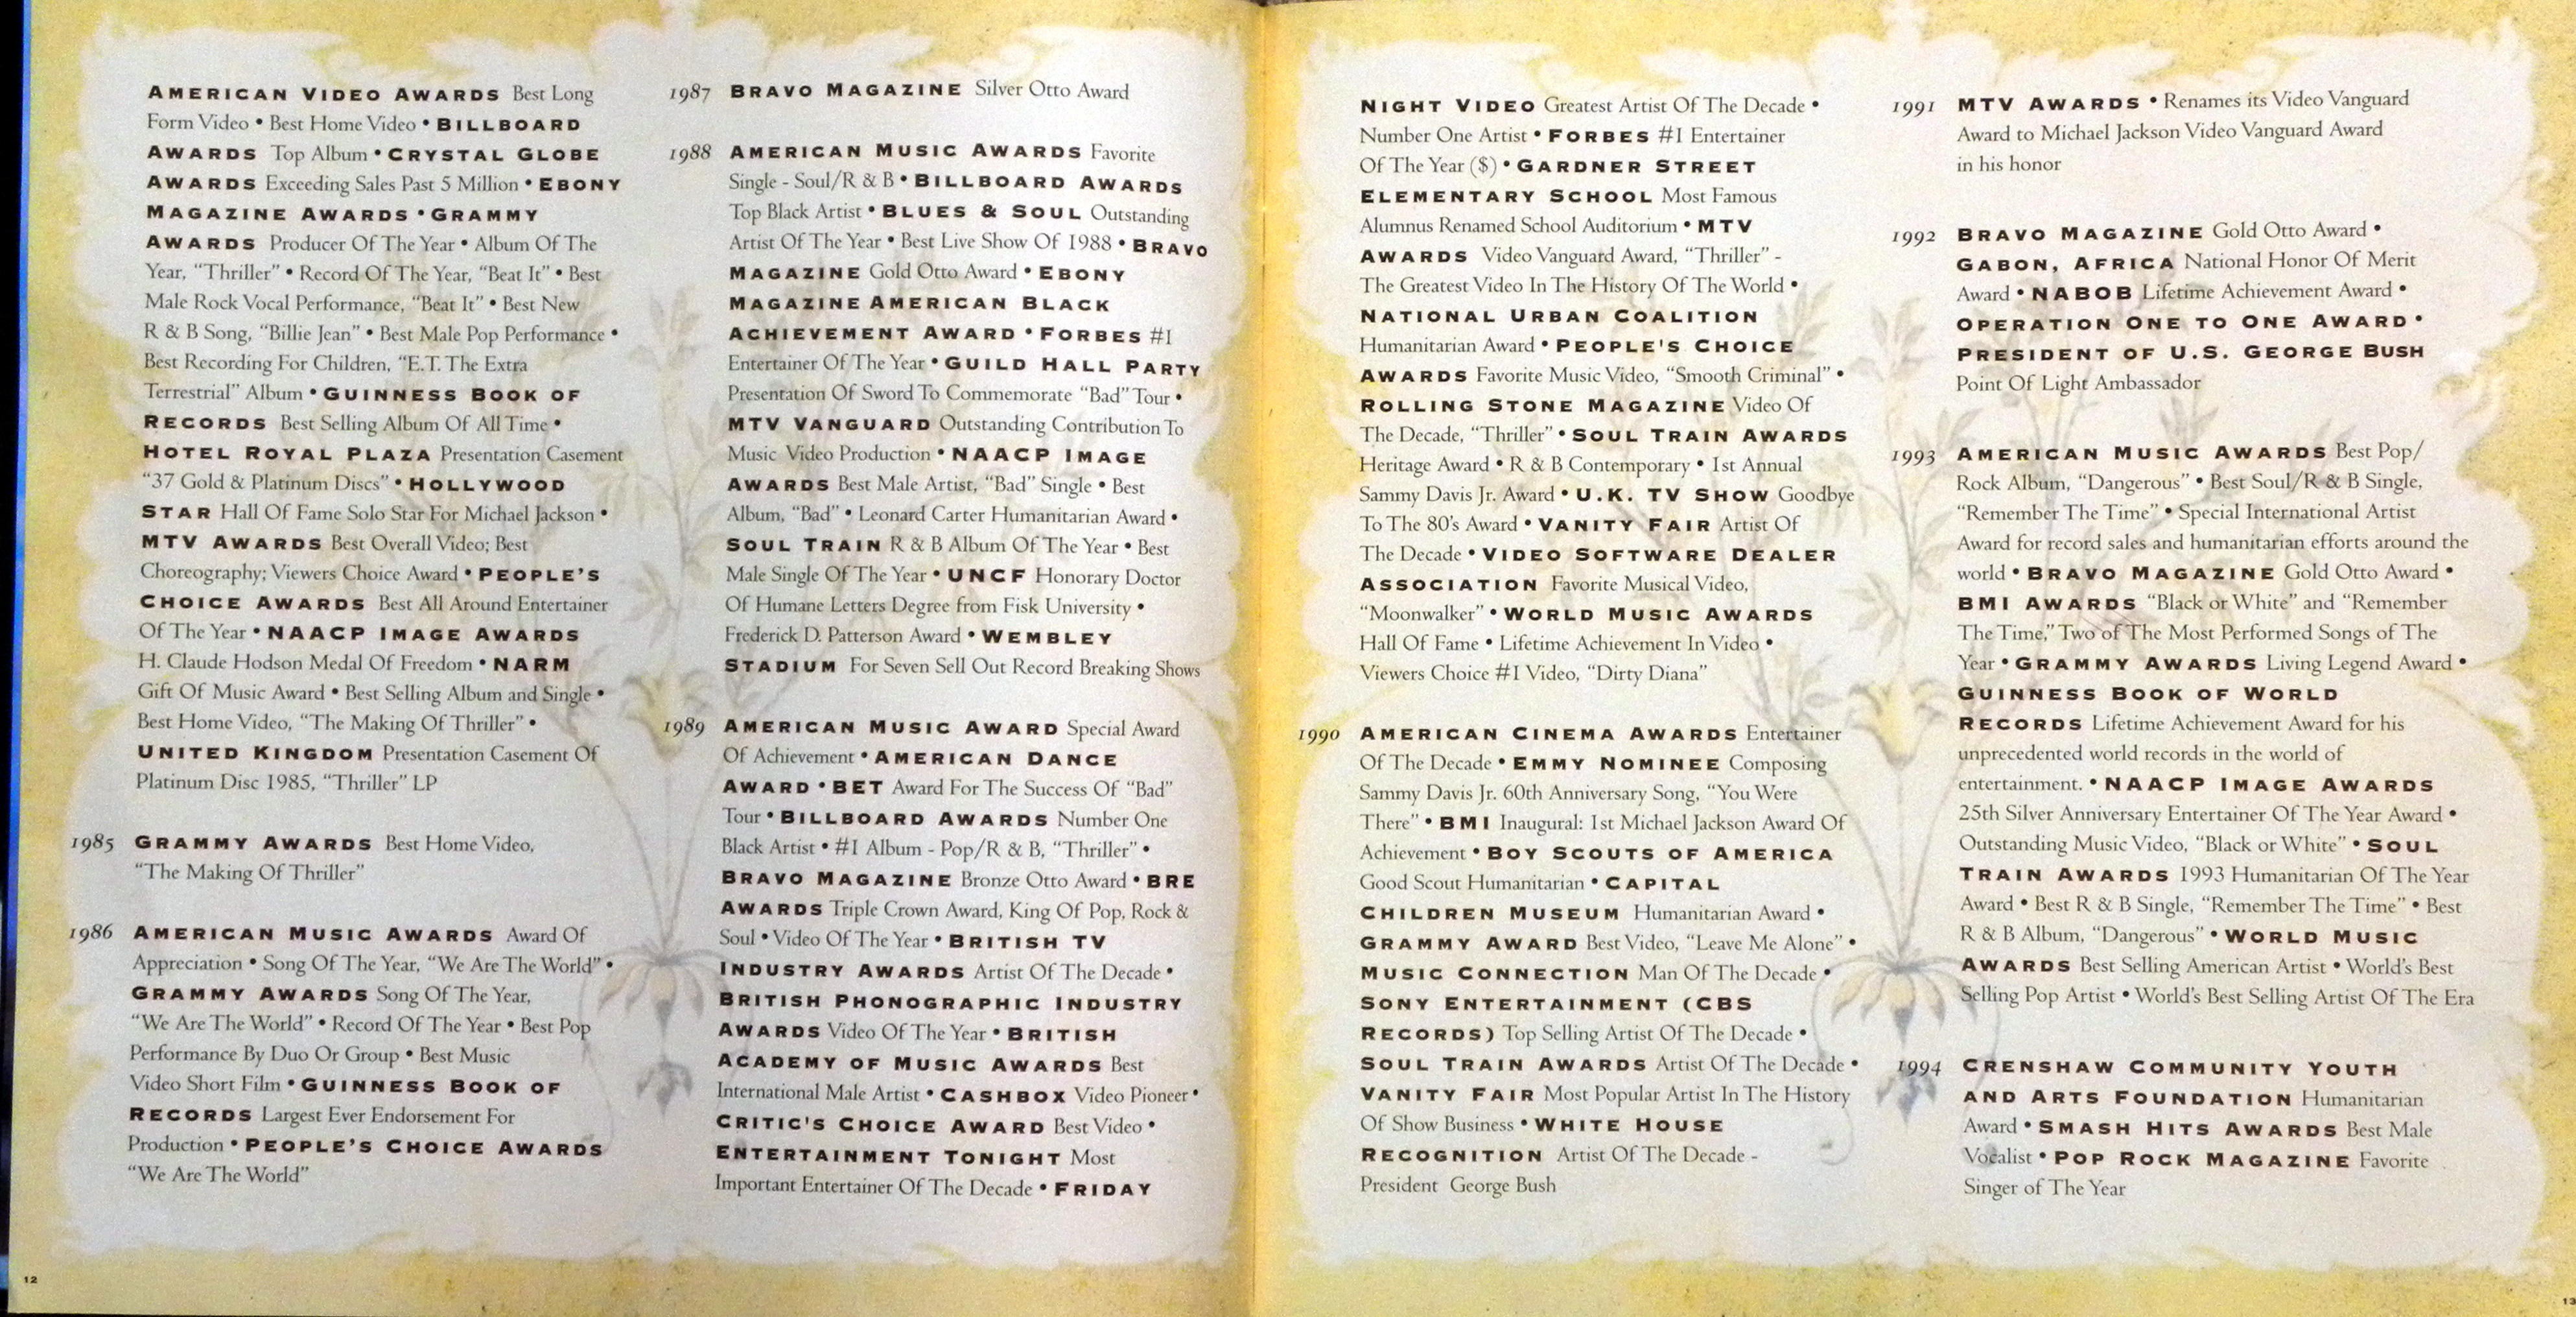 AMERICAN VIDEO AWARDS Best Long
Form Video • Best Home Video • BILLBOARD
AWARDS Top Album • CRYSTAL GLOBE
AWARDS Exceeding Sales Past 5 Million • EBONY
MAGAZINE AWARDS • GRAMMY
AWARDS Producer Of The Year • Album Of The
Year, “Thriller” • Record Of The Year, “Beat It” • Best
Male Rock Vocal Performance, “Beat It” • Best New
R & B Song, “Billie Jean” • Best Male Pop Performance •
Best Recording For Children, “E.T. The Extra
Terrestrial” Album • GUINNESS BOOK OF
RECORDS Best Selling Album Of All Time •
HOTEL ROYAL PLAZA Presentation Casement
“37 Gold & Platinum Discs” • HOLLYWOOD
STAR Hall Of Fame Solo Star For Michael Jackson •
MTV AWARDS Best Overall Video; Best
Choreography; Viewers Choice Award • PEOPLE’S
CHOICE AWARDS Best All Around Entertainer
Of The Year • NAACP IMAGE AWARDS
H. Claude Hodson Medal Of Freedom • NARM
Gift Of Music Award • Best Selling Album and Single •
Best Home Video, “The Making Of Thriller” •
UNITED KINGDOM Presentation Casement Of
Platinum Disc 1985, “Thriller” LP
1985 GRAMMY AWARDS Best Home Video,
“The Making Of Thriller”
1986 AMERICAN MUSIC AWARDS Award Of
Appreciation • Song Of The Year, “We Are The World” •
GRAMMY AWARDS Song Of The Year,
“We Are The World” • Record Of The Year • Best Pop
Performance By Duo Or Group • Best Music
Video Short Film • GUINNESS BOOK OF
RECORDS Largest Ever Endorsement For
Production • PEOPLE’S CHOICE AWARDS
“We Are The World”
12
1987 BRAVO MAGAZINE Silver Otto Award
1988 AMERICAN MUSIC AWARDS Favorite
Single - Soul/R & B • BILLBOARD AWARDS
Top Black Artist • BLUES & SOUL Outstanding
Artist Of The Year • Best Live Show Of 1988 • BRAVO
MAGAZINE Gold Otto Award • EBONY
MAGAZINE AMERICAN BLACK
ACHIEVEMENT AWARD • FORBES #1
Entertainer Of The Year • GUILD HALL PARTY
Presentation Of Sword To Commemorate “Bad” Tour •
MTV VANGUARD Outstanding Contribution To
Music Video Production • NAACP IMAGE
AWARDS Best Male Artist, “Bad” Single • Best
Album, “Bad” • Leonard Carter Humanitarian Award •
SOUL TRAIN R & B Album Of The Year • Best
Male Single Of The Year • UNCF Honorary Doctor
Of Humane Letters Degree from Fisk University •
Frederick D. Patterson Award • WEMBLEY
STADIUM For Seven Sell Out Record Breaking Shows
1989 AMERICAN MUSIC AWARD Special Award
Of Achievement • AMERICAN DANCE
AWARD • BET Award For The Success Of “Bad”
Tour • BILLBOARD AWARDS Number One
Black Artist • #1 Album - Pop/R & B, “Thriller” •
BRAVO MAGAZINE Bronze Otto Award • BRE
AWARDS Triple Crown Award, King Of Pop, Rock &
Soul • Video Of The Year • BRITISH TV
INDUSTRY AWARDS Artist Of The Decade •
BRITISH PHONOGRAPHIC INDUSTRY
AWARDS Video Of The Year • BRITISH
ACADEMY OF MUSIC AWARDS Best
International Male Artist • CASHBOX Video Pioneer •
CRITIC'S CHOICE AWARD Best Video •
ENTERTAINMENT TONIGHT Most
Important Entertainer Of The Decade • FRIDAY
NIGHT VIDEO Greatest Artist Of The Decade •
Number One Artist • FORBES #1 Entertainer
Of The Year ($) • GARDNER STREET
ELEMENTARY SCHOOL Most Famous
Alumnus Renamed School Auditorium • MTV
AWARDS Video Vanguard Award, “Thriller” -
The Greatest Video In The History Of The World •
NATIONAL URBAN COALITION
Humanitarian Award • PEOPLE'S CHOICE
AWARDS Favorite Music Video, “Smooth Criminal” •
ROLLING STONE MAGAZINE Video Of
The Decade, “Thriller” • SOUL TRAIN AWARDS
Heritage Award • R & B Contemporary • 1st Annual
Sammy Davis Jr. Award • U.K. TV SHOW Goodbye
To The 80’s Award • VANITY FAIR Artist Of
The Decade • VIDEO SOFTWARE DEALER
ASSOCIATION Favorite Musical Video,
“Moonwalker” • WORLD MUSIC AWARDS
Hall Of Fame • Lifetime Achievement In Video •
Viewers Choice #1 Video, “Dirty Diana”
1990 AMERICAN CINEMA AWARDS Entertainer
Of The Decade • EMMY NOMINEE Composing
Sammy Davis Jr. 60th Anniversary Song, “You Were
There” • BMI Inaugural: 1st Michael Jackson Award Of
Achievement • BOY SCOUTS OF AMERICA
Good Scout Humanitarian • CAPITAL
CHILDREN MUSEUM Humanitarian Award •
GRAMMY AWARD Best Video, “Leave Me Alone” •
MUSIC CONNECTION Man Of The Decade •
SONY ENTERTAINMENT (CBS
RECORDS) Top Selling Artist Of The Decade •
SOUL TRAIN AWARDS Artist Of The Decade •
VANITY FAIR Most Popular Artist In The History
Of Show Business • WHITE HOUSE
RECOGNITION Artist Of The Decade -
President George Bush
1991 MTV AWARDS • Renames its Video Vanguard
Award to Michael Jackson Video Vanguard Award
in his honor
1992 BRAVO MAGAZINE Gold Otto Award •
GABON, AFRICA National Honor Of Merit
Award • NABOB Lifetime Achievement Award •
OPERATION ONE TO ONE AWARD •
PRESIDENT OF U.S. GEORGE BUSH
Point Of Light Ambassador
1993 AMERICAN MUSIC AWARDS Best Pop/
Rock Album, “Dangerous” • Best Soul/R & B Single,
“Remember The Time” • Special International Artist
Award for record sales and humanitarian efforts around the
world • BRAVO MAGAZINE Gold Otto Award •
BMI AWARDS “Black or White” and “Remember
The Time,” Two of The Most Performed Songs of The
Year • GRAMMY AWARDS Living Legend Award •
GUINNESS BOOK OF WORLD
RECORDS Lifetime Achievement Award for his
unprecedented world records in the world of
entertainment. • NAACP IMAGE AWARDS
25th Silver Anniversary Entertainer Of The Year Award •
Outstanding Music Video, “Black or White” • SOUL
TRAIN AWARDS 1993 Humanitarian Of The Year
Award • Best R & B Single, “Remember The Time” • Best
R & B Album, “Dangerous” • WORLD MUSIC
AWARDS Best Selling American Artist • World’s Best
Selling Pop Artist • World’s Best Selling Artist Of The Era
1994 CRENSHAW COMMUNITY YOUTH
AND ARTS FOUNDATION Humanitarian
Award • SMASH HITS AWARDS Best Male
Vocalist • POP ROCK MAGAZINE Favorite
Singer of The Year
13